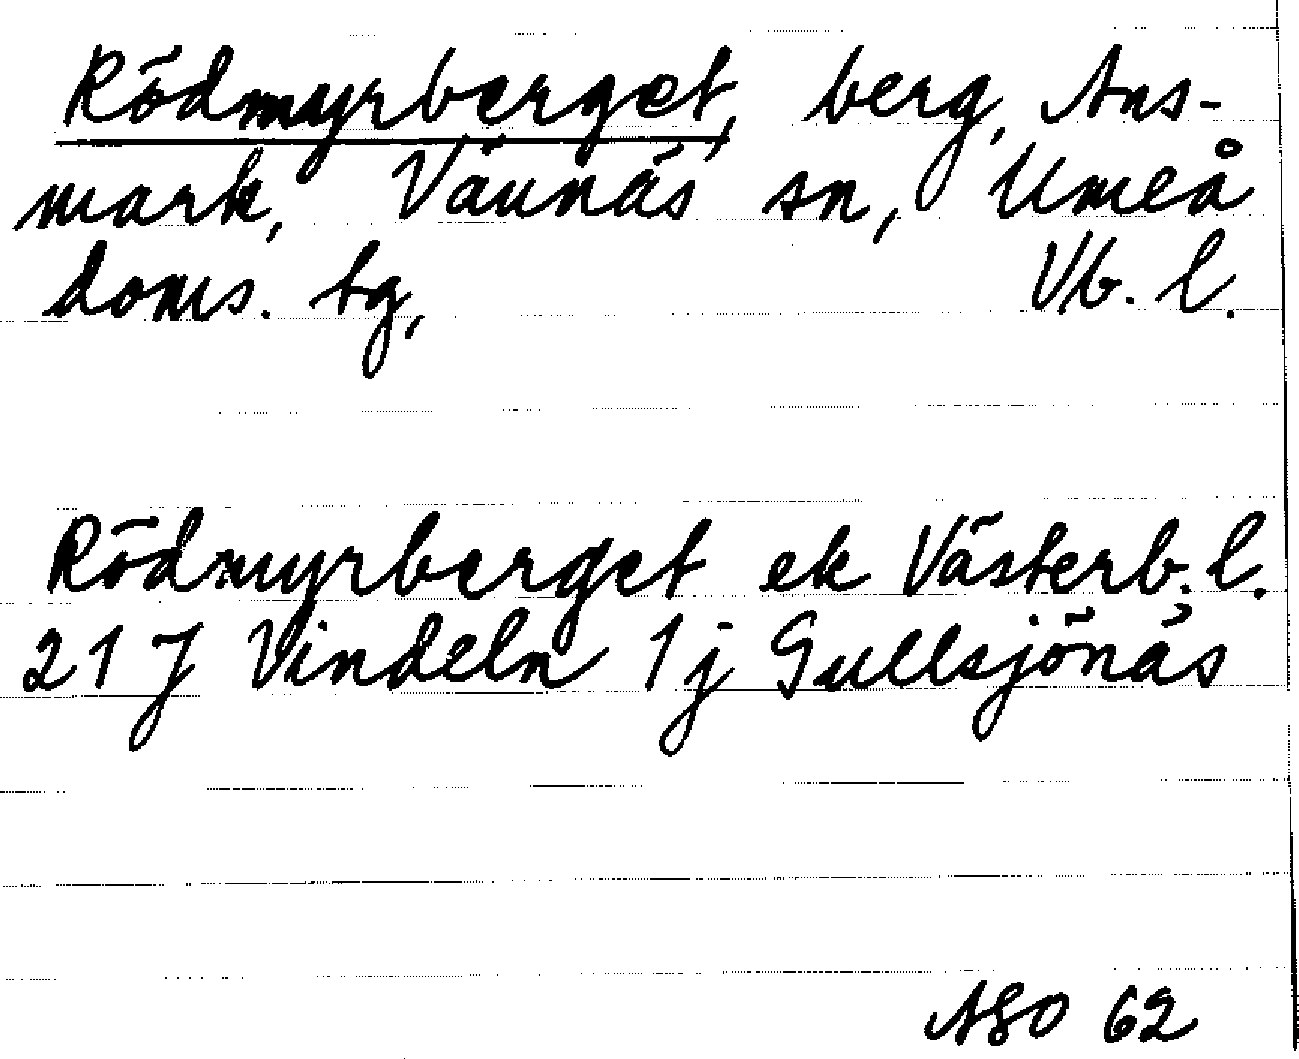 Rödmyrberget, berg, Ans-
mark, Vännäs sn, Umeå
doms. tg, Vb. l.
Rödmyrberget ek Västerb. l.
21 J Vindeln 1j Gullsjönäs
ASO 62